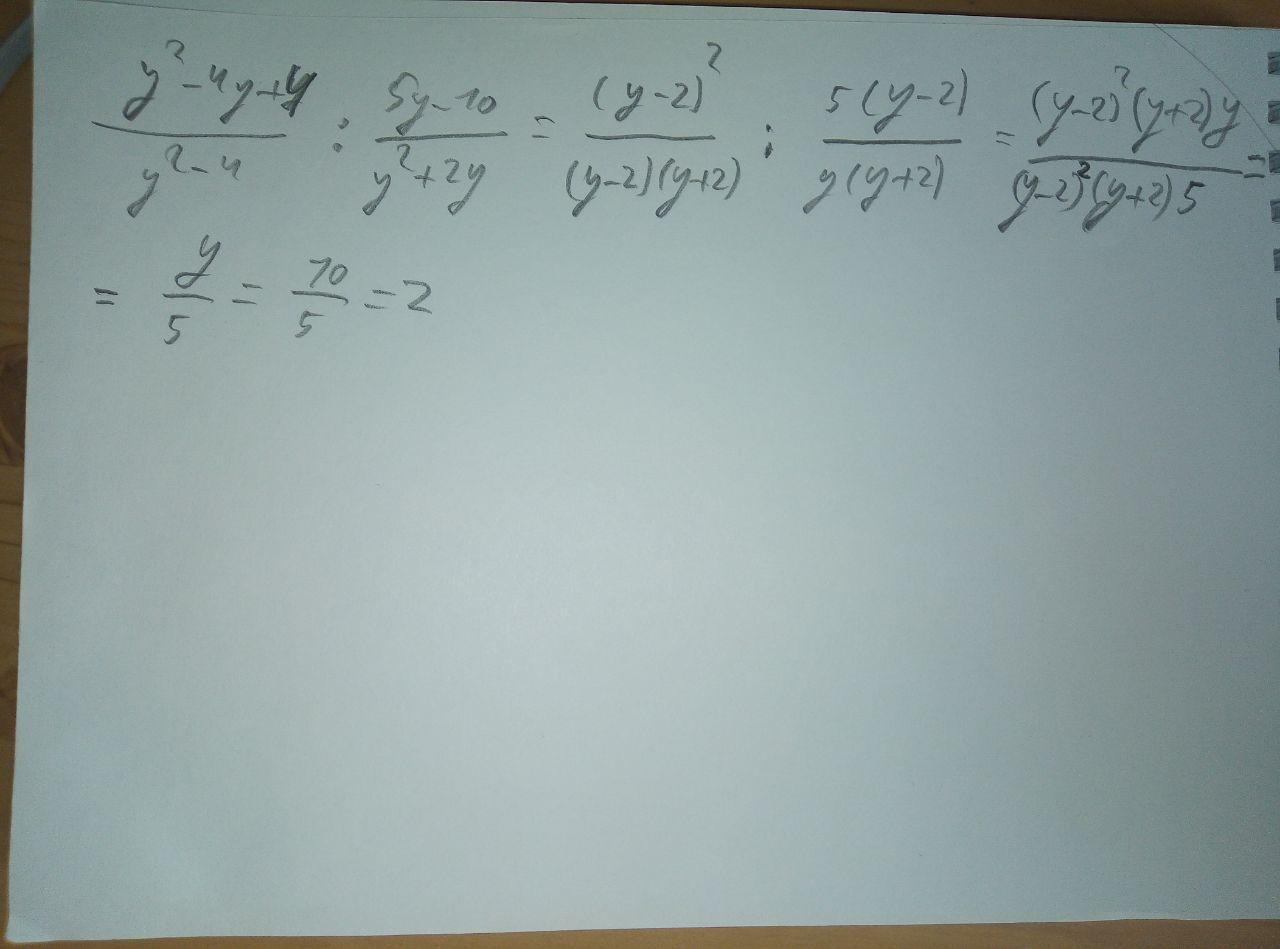 \frac{y^2-4y+4}{y^2-4} : \frac{5y-10}{y^2+2y} = \frac{(y-2)^2}{(y-2)(y+2)} : \frac{5(y-2)}{y(y+2)} = \frac{(y-2)^2(y+2)y}{(y-2)^2(y+2)5} =
= \frac{y}{5} = \frac{10}{5} = 2